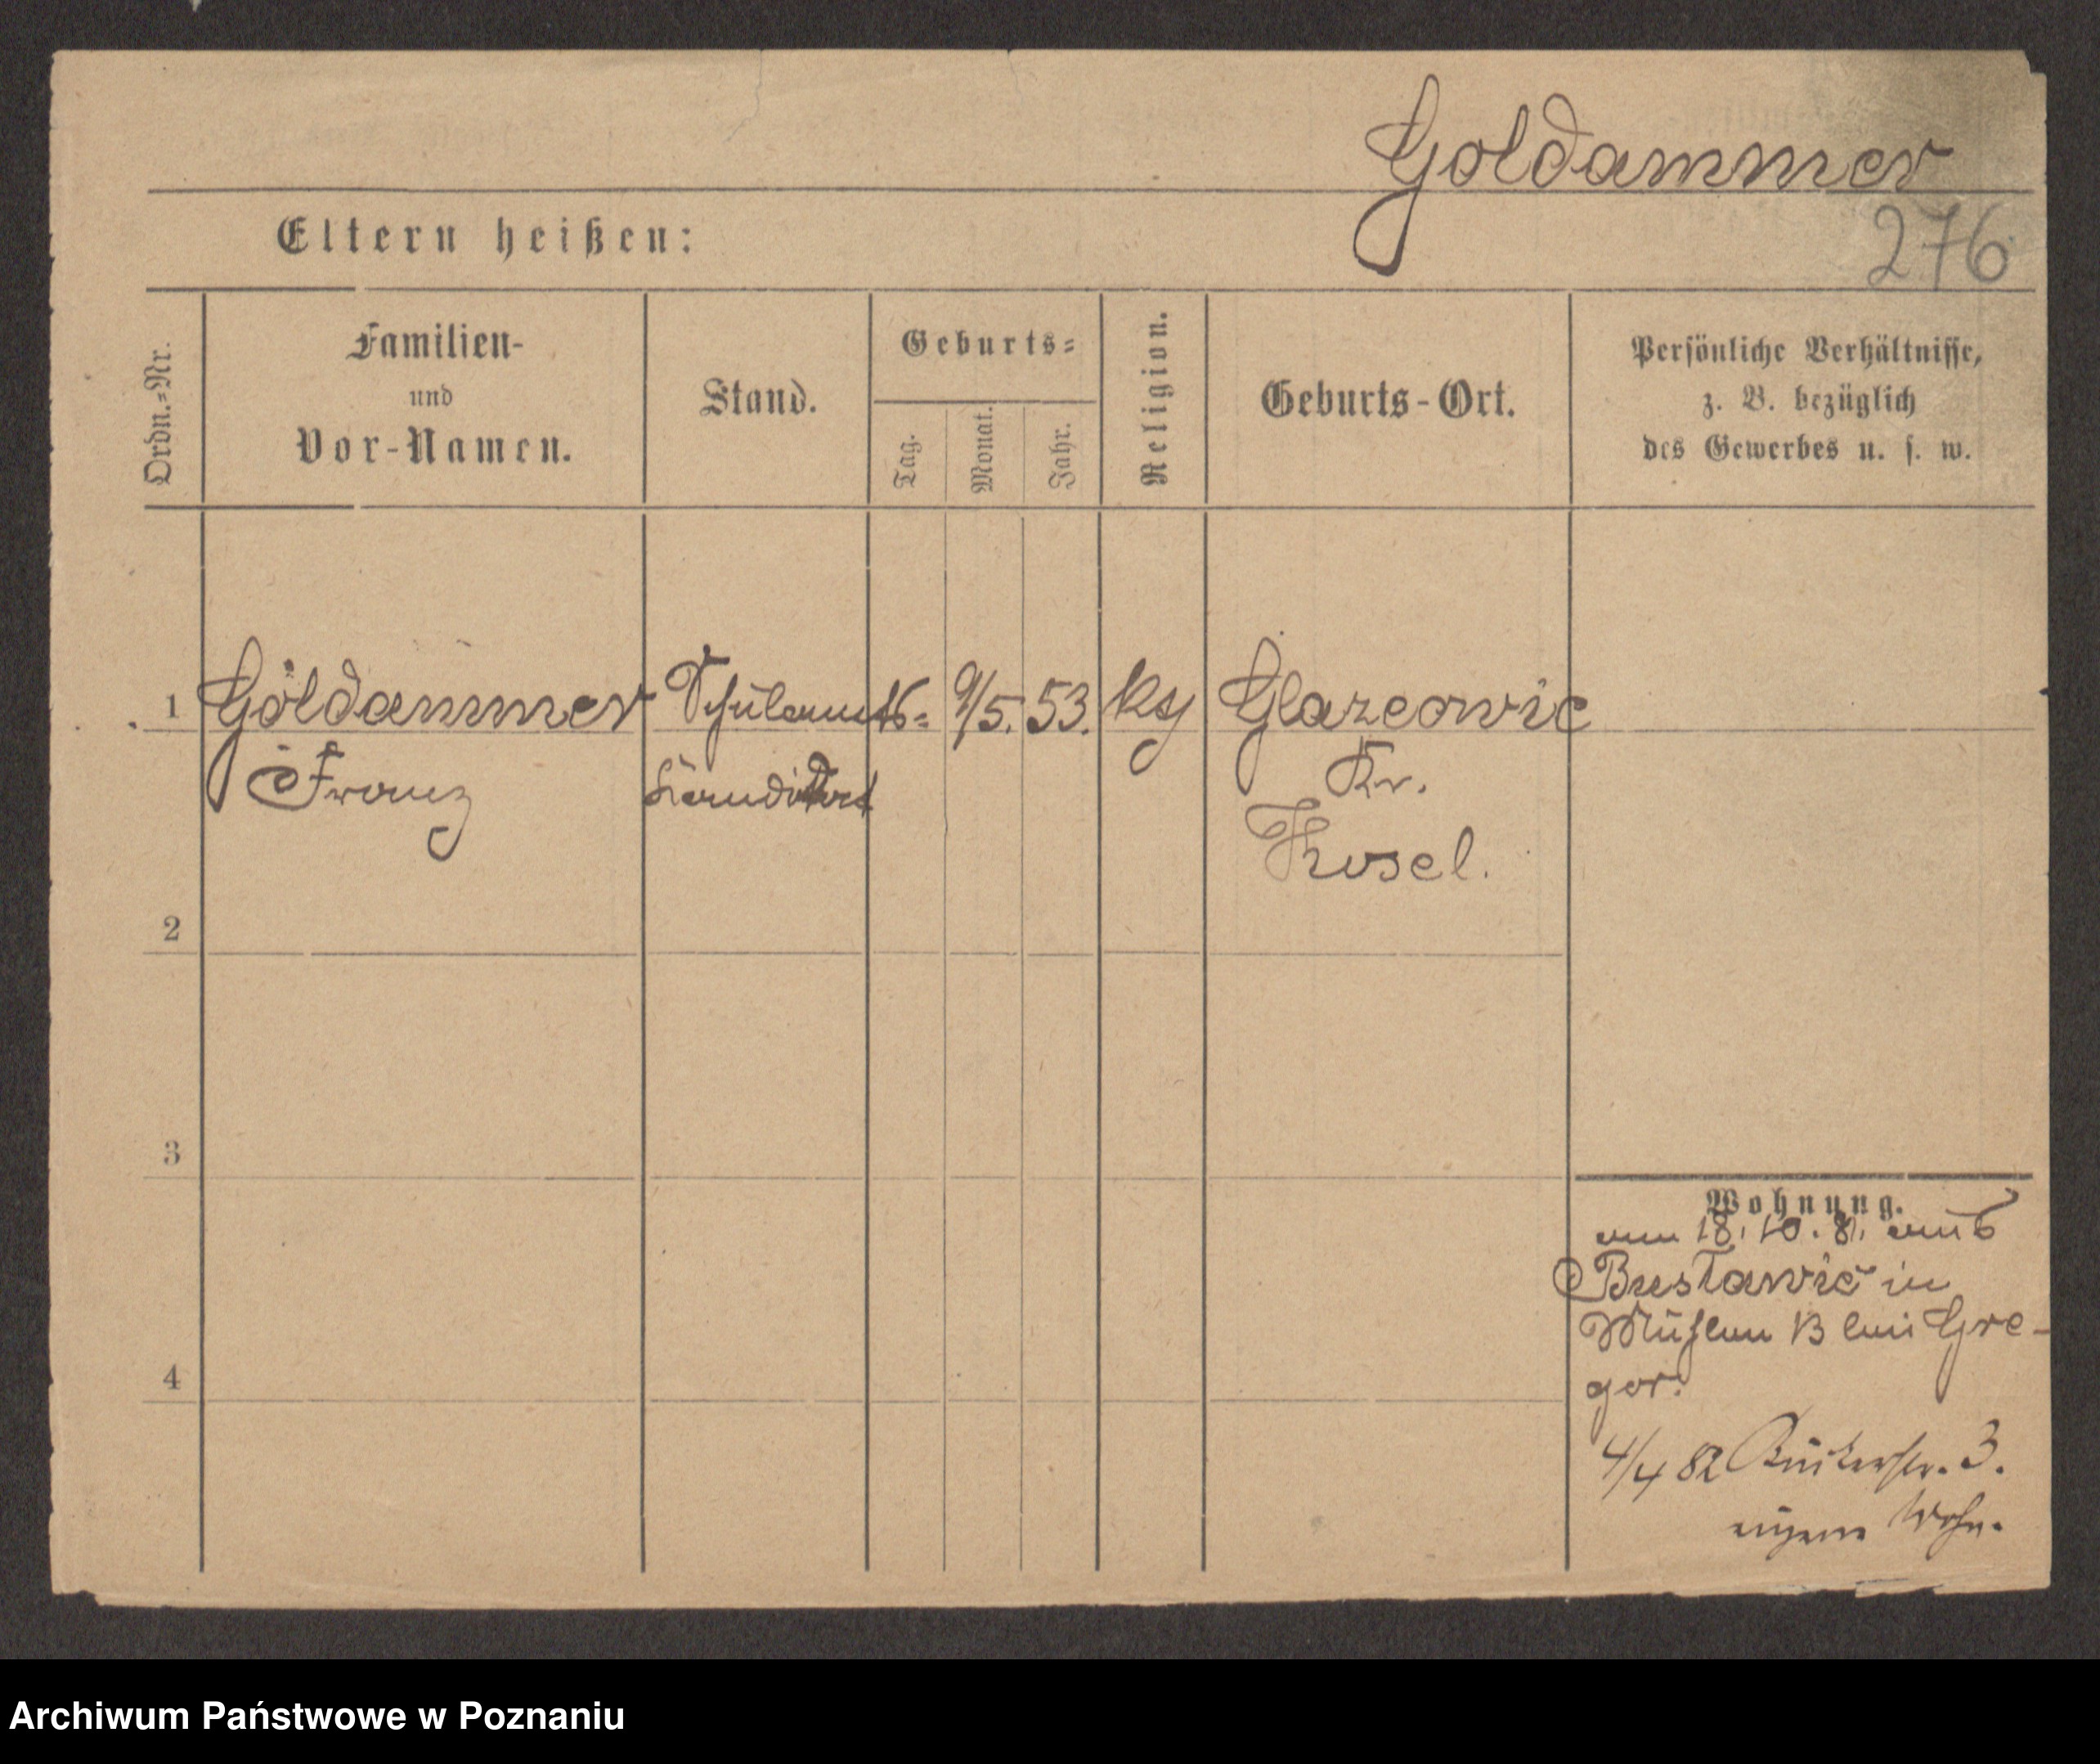 Goldammer
276
Eltern heißen:
Ordn.-Nr.
Familien-
und
Vor-Namen.
Stand.
Geburts-
Tag.
Monat.
Jahr.
Religion.
Geburts-Ort.
Persönliche Verhältnisse,
z. B. bezüglich
des Gewerbes u. s. w.
1 Goldammer Schulamts= 9/5. 53. Glazeowic
Franz Kandidat Kr.
Kosel.
2
3
4
Wohnung.
am 18.10.81. aus
in
Mühlen 13 bei Gre-
gor.
4/4 82 3.
eigene Wohn.
Archiwum Państwowe w Poznaniu